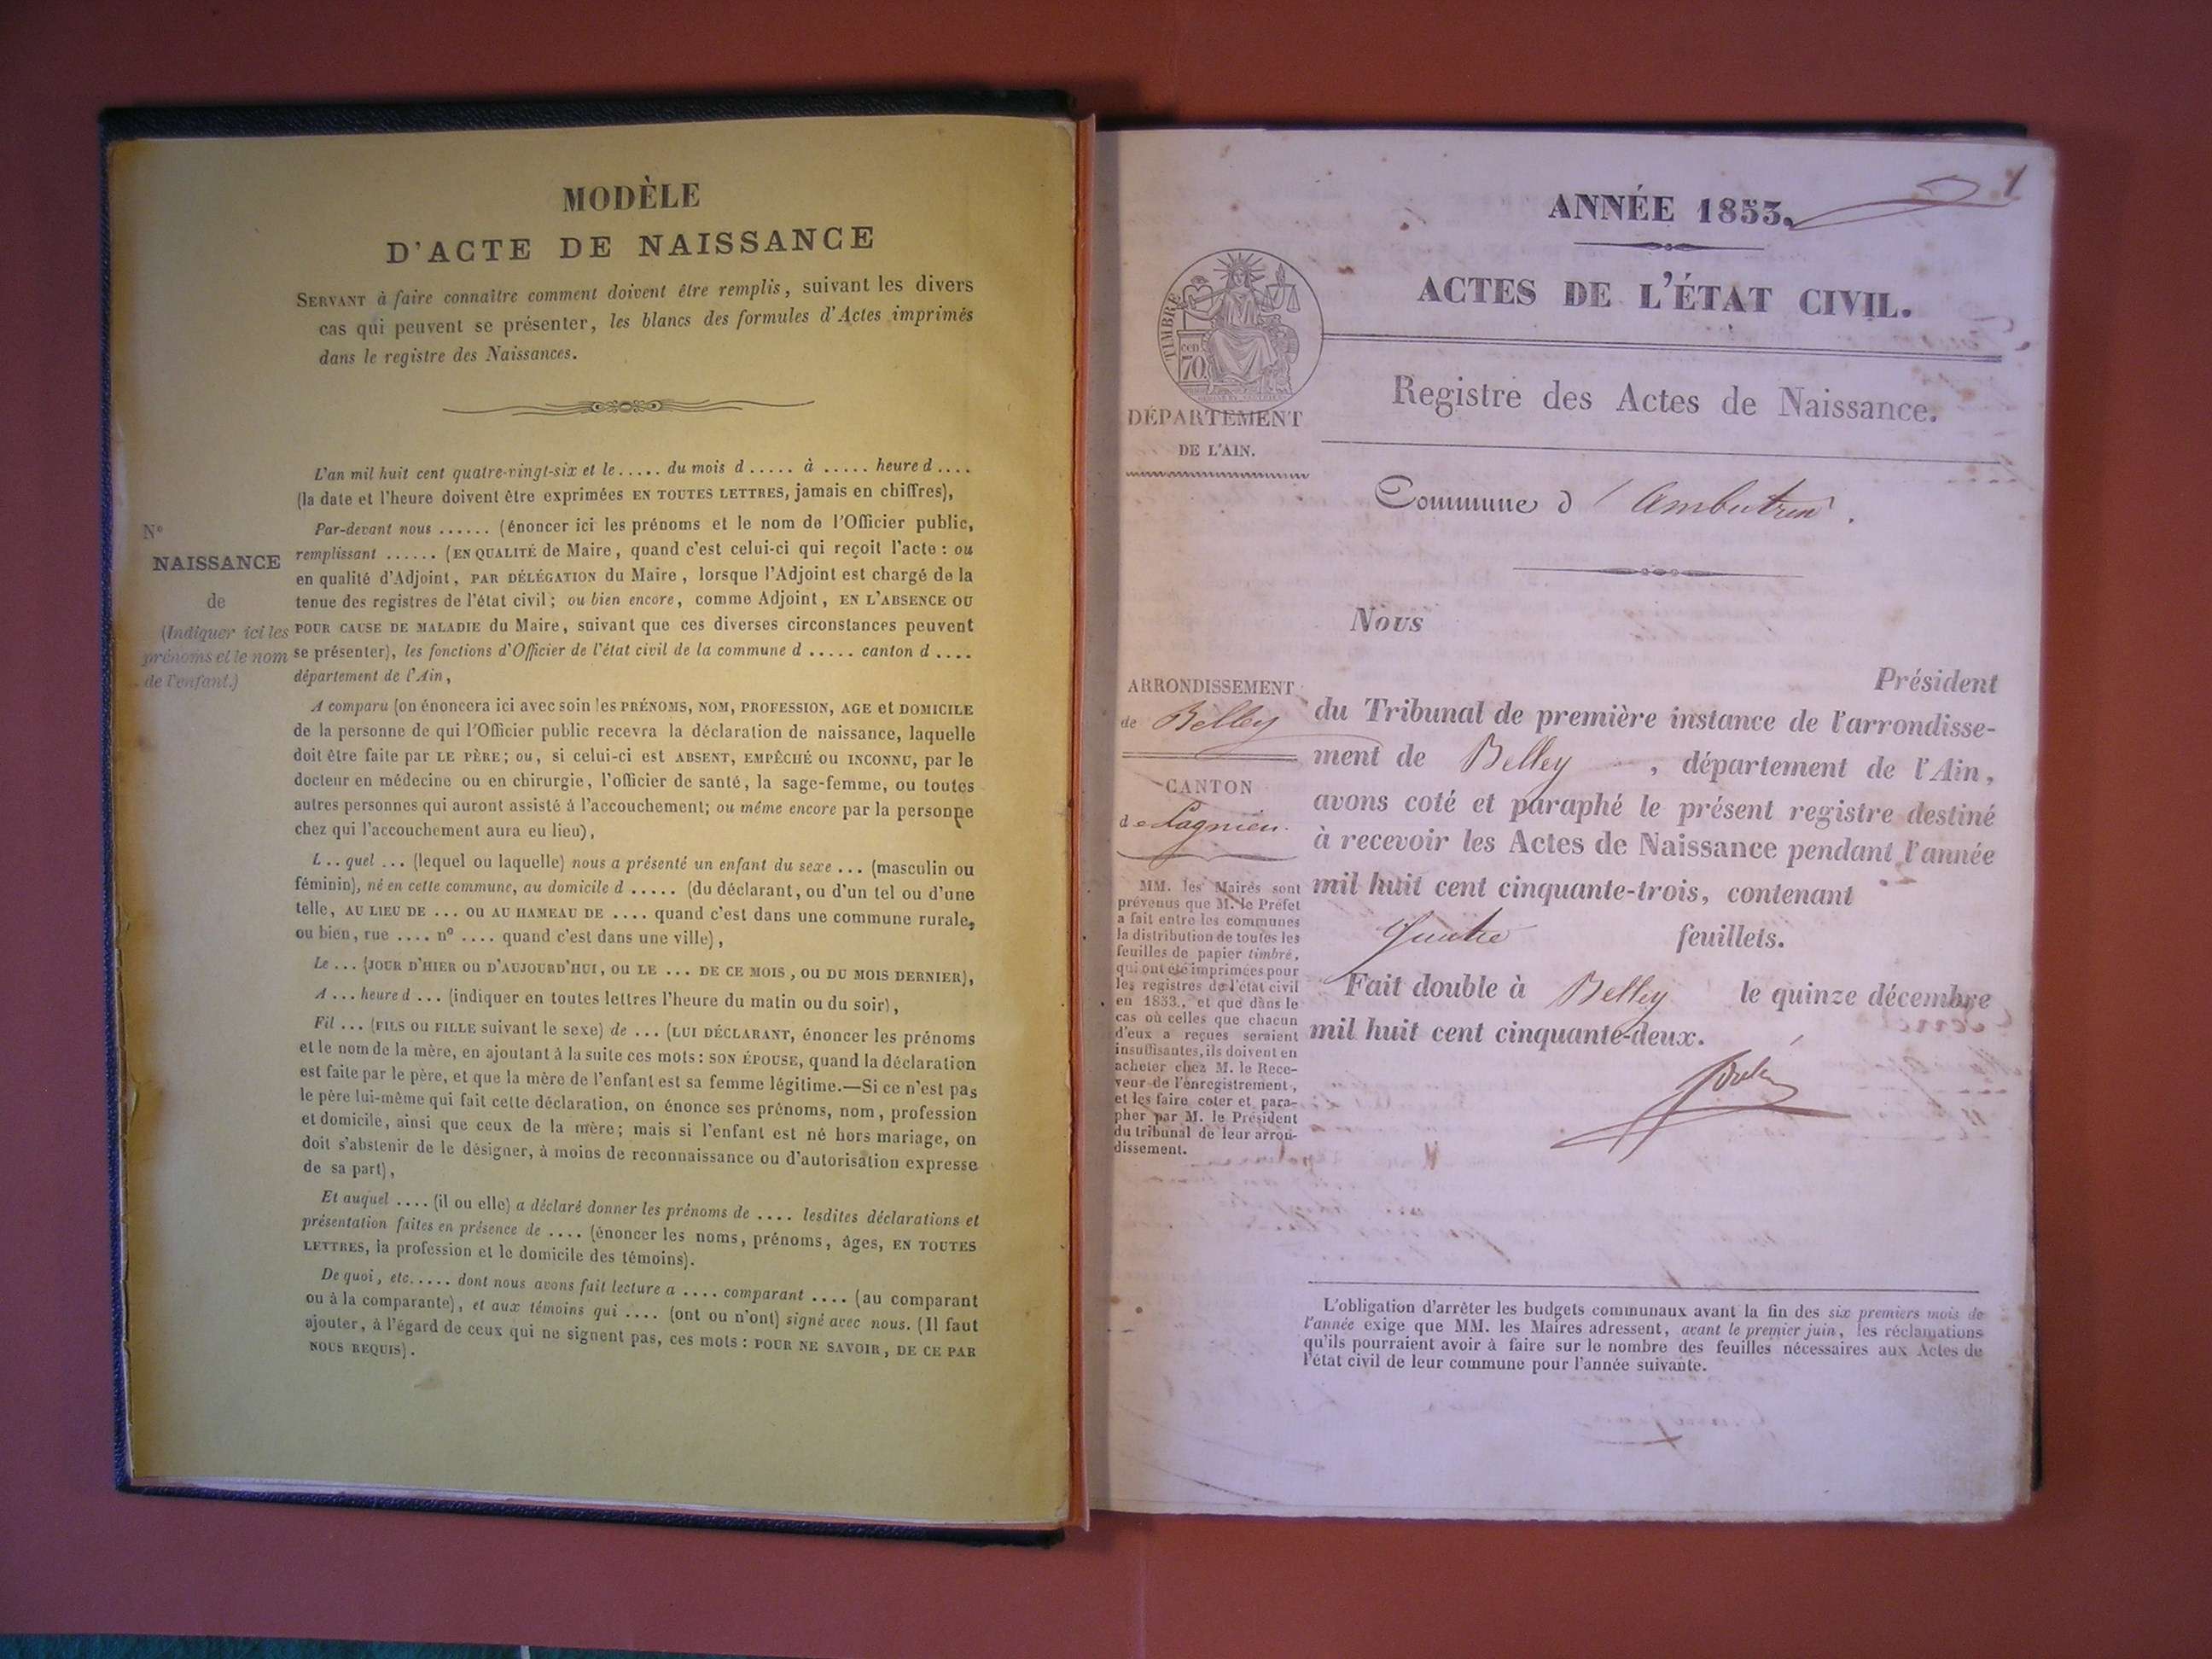 MODÈLE
D'ACTE DE NAISSANCE
SERVANT à faire connaître comment doivent être remplis, suivant les divers
cas qui peuvent se présenter, les blancs des formules d'Actes imprimés
dans le registre des Naissances.
L'an mil huit cent quatre-vingt-six et le ..... du mois d ..... à ..... heure d ....
(la date et l'heure doivent être exprimées EN TOUTES LETTRES, jamais en chiffres),
Par-devant nous ...... (énoncer ici les prénoms et le nom de l'Officier public,
remplissant ...... (EN QUALITÉ de Maire, quand c'est celui-ci qui reçoit l'acte : ou
en qualité d'Adjoint, PAR DÉLÉGATION du Maire, lorsque l'Adjoint est chargé de la
tenue des registres de l'état civil ; ou bien encore, comme Adjoint, EN L'ABSENCE OU
POUR CAUSE DE MALADIE du Maire, suivant que ces diverses circonstances peuvent
se présenter), les fonctions d'Officier de l'état civil de la commune d ..... canton d ....
département de l'Ain,
N°
NAISSANCE
de
(Indiquer ici les
prénoms et le nom
de l'enfant.)
A comparu (on énoncera ici avec soin les PRÉNOMS, NOM, PROFESSION, AGE et DOMICILE
de la personne de qui l'Officier public recevra la déclaration de naissance, laquelle
doit être faite par LE PÈRE ; ou, si celui-ci est ABSENT, EMPÊCHÉ OU INCONNU, par le
docteur en médecine ou en chirurgie, l'officier de santé, la sage-femme, ou toutes
autres personnes qui auront assisté à l'accouchement; ou même encore par la personne
chez qui l'accouchement aura eu lieu),
L .. quel ... (lequel ou laquelle) nous a présenté un enfant du sexe ... (masculin ou
féminin), né en cette commune, au domicile d ..... (du déclarant, ou d'un tel ou d'une
telle, AU LIEU DE ... OU AU HAMEAU DE .... quand c'est dans une commune rurale,
ou bien, rue .... n° .... quand c'est dans une ville),
Le ... (JOUR D'HIER OU D'AUJOURD'HUI, OU LE ... DE CE MOIS, OU DU MOIS DERNIER),
A ... heure d ... (indiquer en toutes lettres l'heure du matin ou du soir),
Fil ... (FILS OU FILLE suivant le sexe) de ... (LUI DÉCLARANT, énoncer les prénoms
et le nom de la mère, en ajoutant à la suite ces mots : SON ÉPOUSE, quand la déclaration
est faite par le père, et que la mère de l'enfant est sa femme légitime.—Si ce n'est pas
le père lui-même qui fait cette déclaration, on énonce ses prénoms, nom, profession
et domicile, ainsi que ceux de la mère; mais si l'enfant est né hors mariage, on
doit s'abstenir de le désigner, à moins de reconnaissance ou d'autorisation expresse
de sa part),
Et auquel .... (il ou elle) a déclaré donner les prénoms de .... lesdites déclarations et
présentation faites en présence de .... (énoncer les noms, prénoms, âges, EN TOUTES
LETTRES, la profession et le domicile des témoins).
De quoi, etc..... dont nous avons fait lecture a .... comparant .... (au comparant
ou à la comparante), et aux témoins qui .... (ont ou n'ont) signé avec nous. (Il faut
ajouter, à l'égard de ceux qui ne signent pas, ces mots : POUR NE SAVOIR, DE CE PAR
NOUS REQUIS).
1
ANNÉE 1853.
ACTES DE L'ÉTAT CIVIL.
TIMBRE
cen
70
DÉPARTEMENT
DE L'AIN.
Registre des Actes de Naissance.
Commune d'Ambutrix.
Nous
Président
du Tribunal de première instance de l'arrondisse-
ment de Belley, département de l'Ain,
avons coté et paraphé le présent registre destiné
à recevoir les Actes de Naissance pendant l'année
mil huit cent cinquante-trois, contenant
Quatre feuillets.
Fait double à Belley le quinze décembre
mil huit cent cinquante-deux.
ARRONDISSEMENT
de Belley
CANTON
de Lagnieu.
MM. les Maires sont
prévenus que M. le Préfet
a fait entre les communes
la distribution de toutes les
feuilles de papier timbré,
qui ont été imprimées pour
les registres de l'état civil
en 1853, et que dans le
cas où celles que chacun
d'eux a reçues seraient
insuffisantes, ils doivent en
acheter chez M. le Rece-
veur de l'enregistrement,
et les faire coter et para-
pher par M. le Président
du tribunal de leur arron-
dissement.
L'obligation d'arrêter les budgets communaux avant la fin des six premiers mois de
l'année exige que MM. les Maires adressent, avant le premier juin, les réclamations
qu'ils pourraient avoir à faire sur le nombre des feuilles nécessaires aux Actes de
l'état civil de leur commune pour l'année suivante.